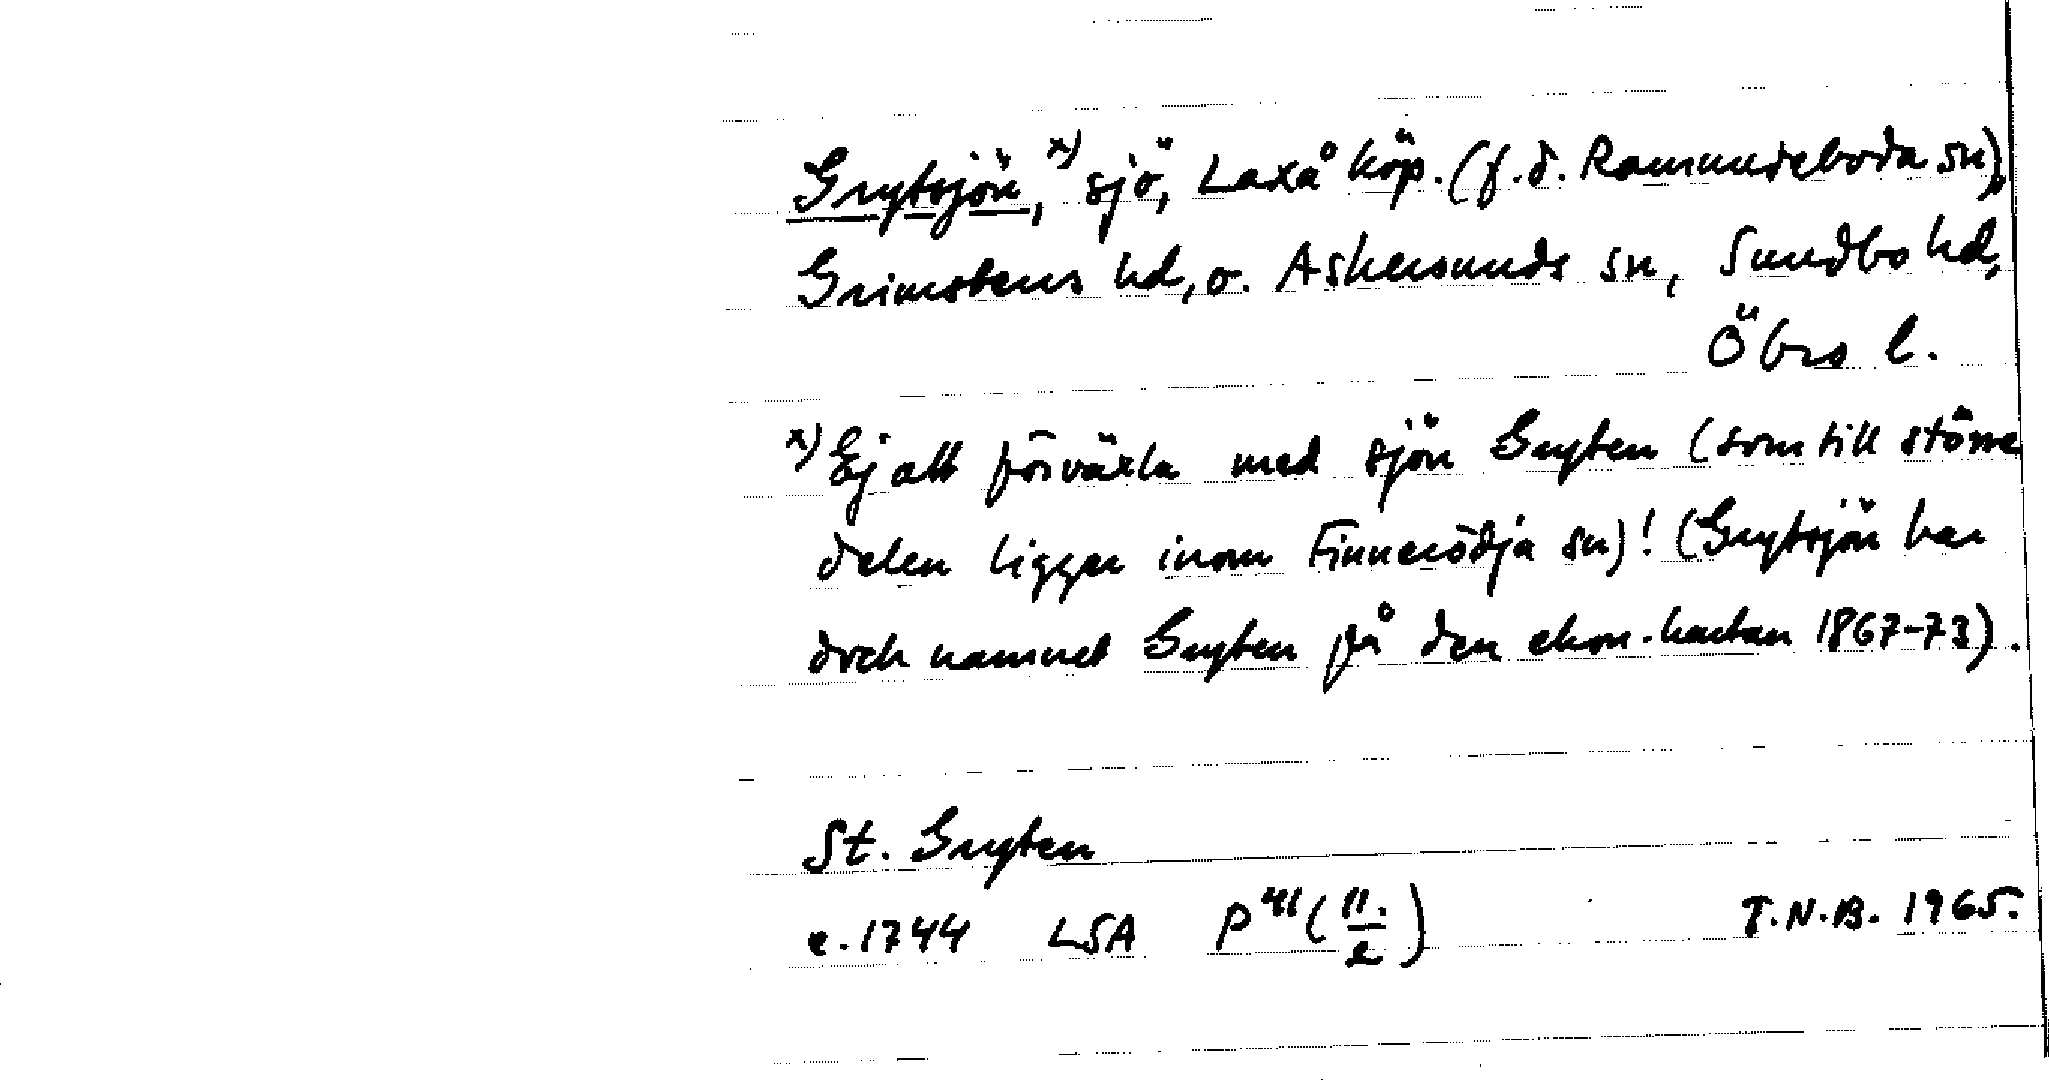 Grytsjön,x) sjö, Laxå köp. (f.d. Ramundeboda sn),
Grimstens hd, o. Askersunds sn, Sundbo hd,
Öbro l.
x) Ej att förväxla med sjön Gryten (som till större
delen ligger inom Finnerödja sn)! (Grytsjön har
dock namnet Gryten på den ekon. kartan 1867-73).
St. Gryten
c. 1744 LSA P 41 (11./2) T.N.B. 1965.